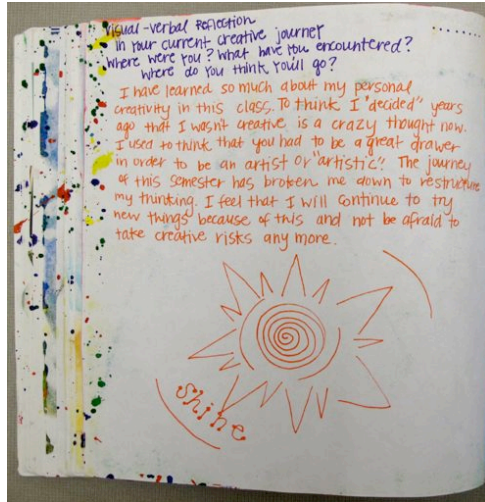 Visual-Verbal Reflection
in your current creative journey
Where were you? What have you encountered?
Where do you think you'll go?
I have learned so much about my personal
creativity in this class. To think I "decided" years
ago that I wasn't creative is a crazy thought now.
I used to think that you had to be a great drawer
in order to be an artist or "artistic". The journey
of this semester has broken me down to restructure
my thinking. I feel that I will continue to try
new things because of this and not be afraid to
take creative risks any more.
shine